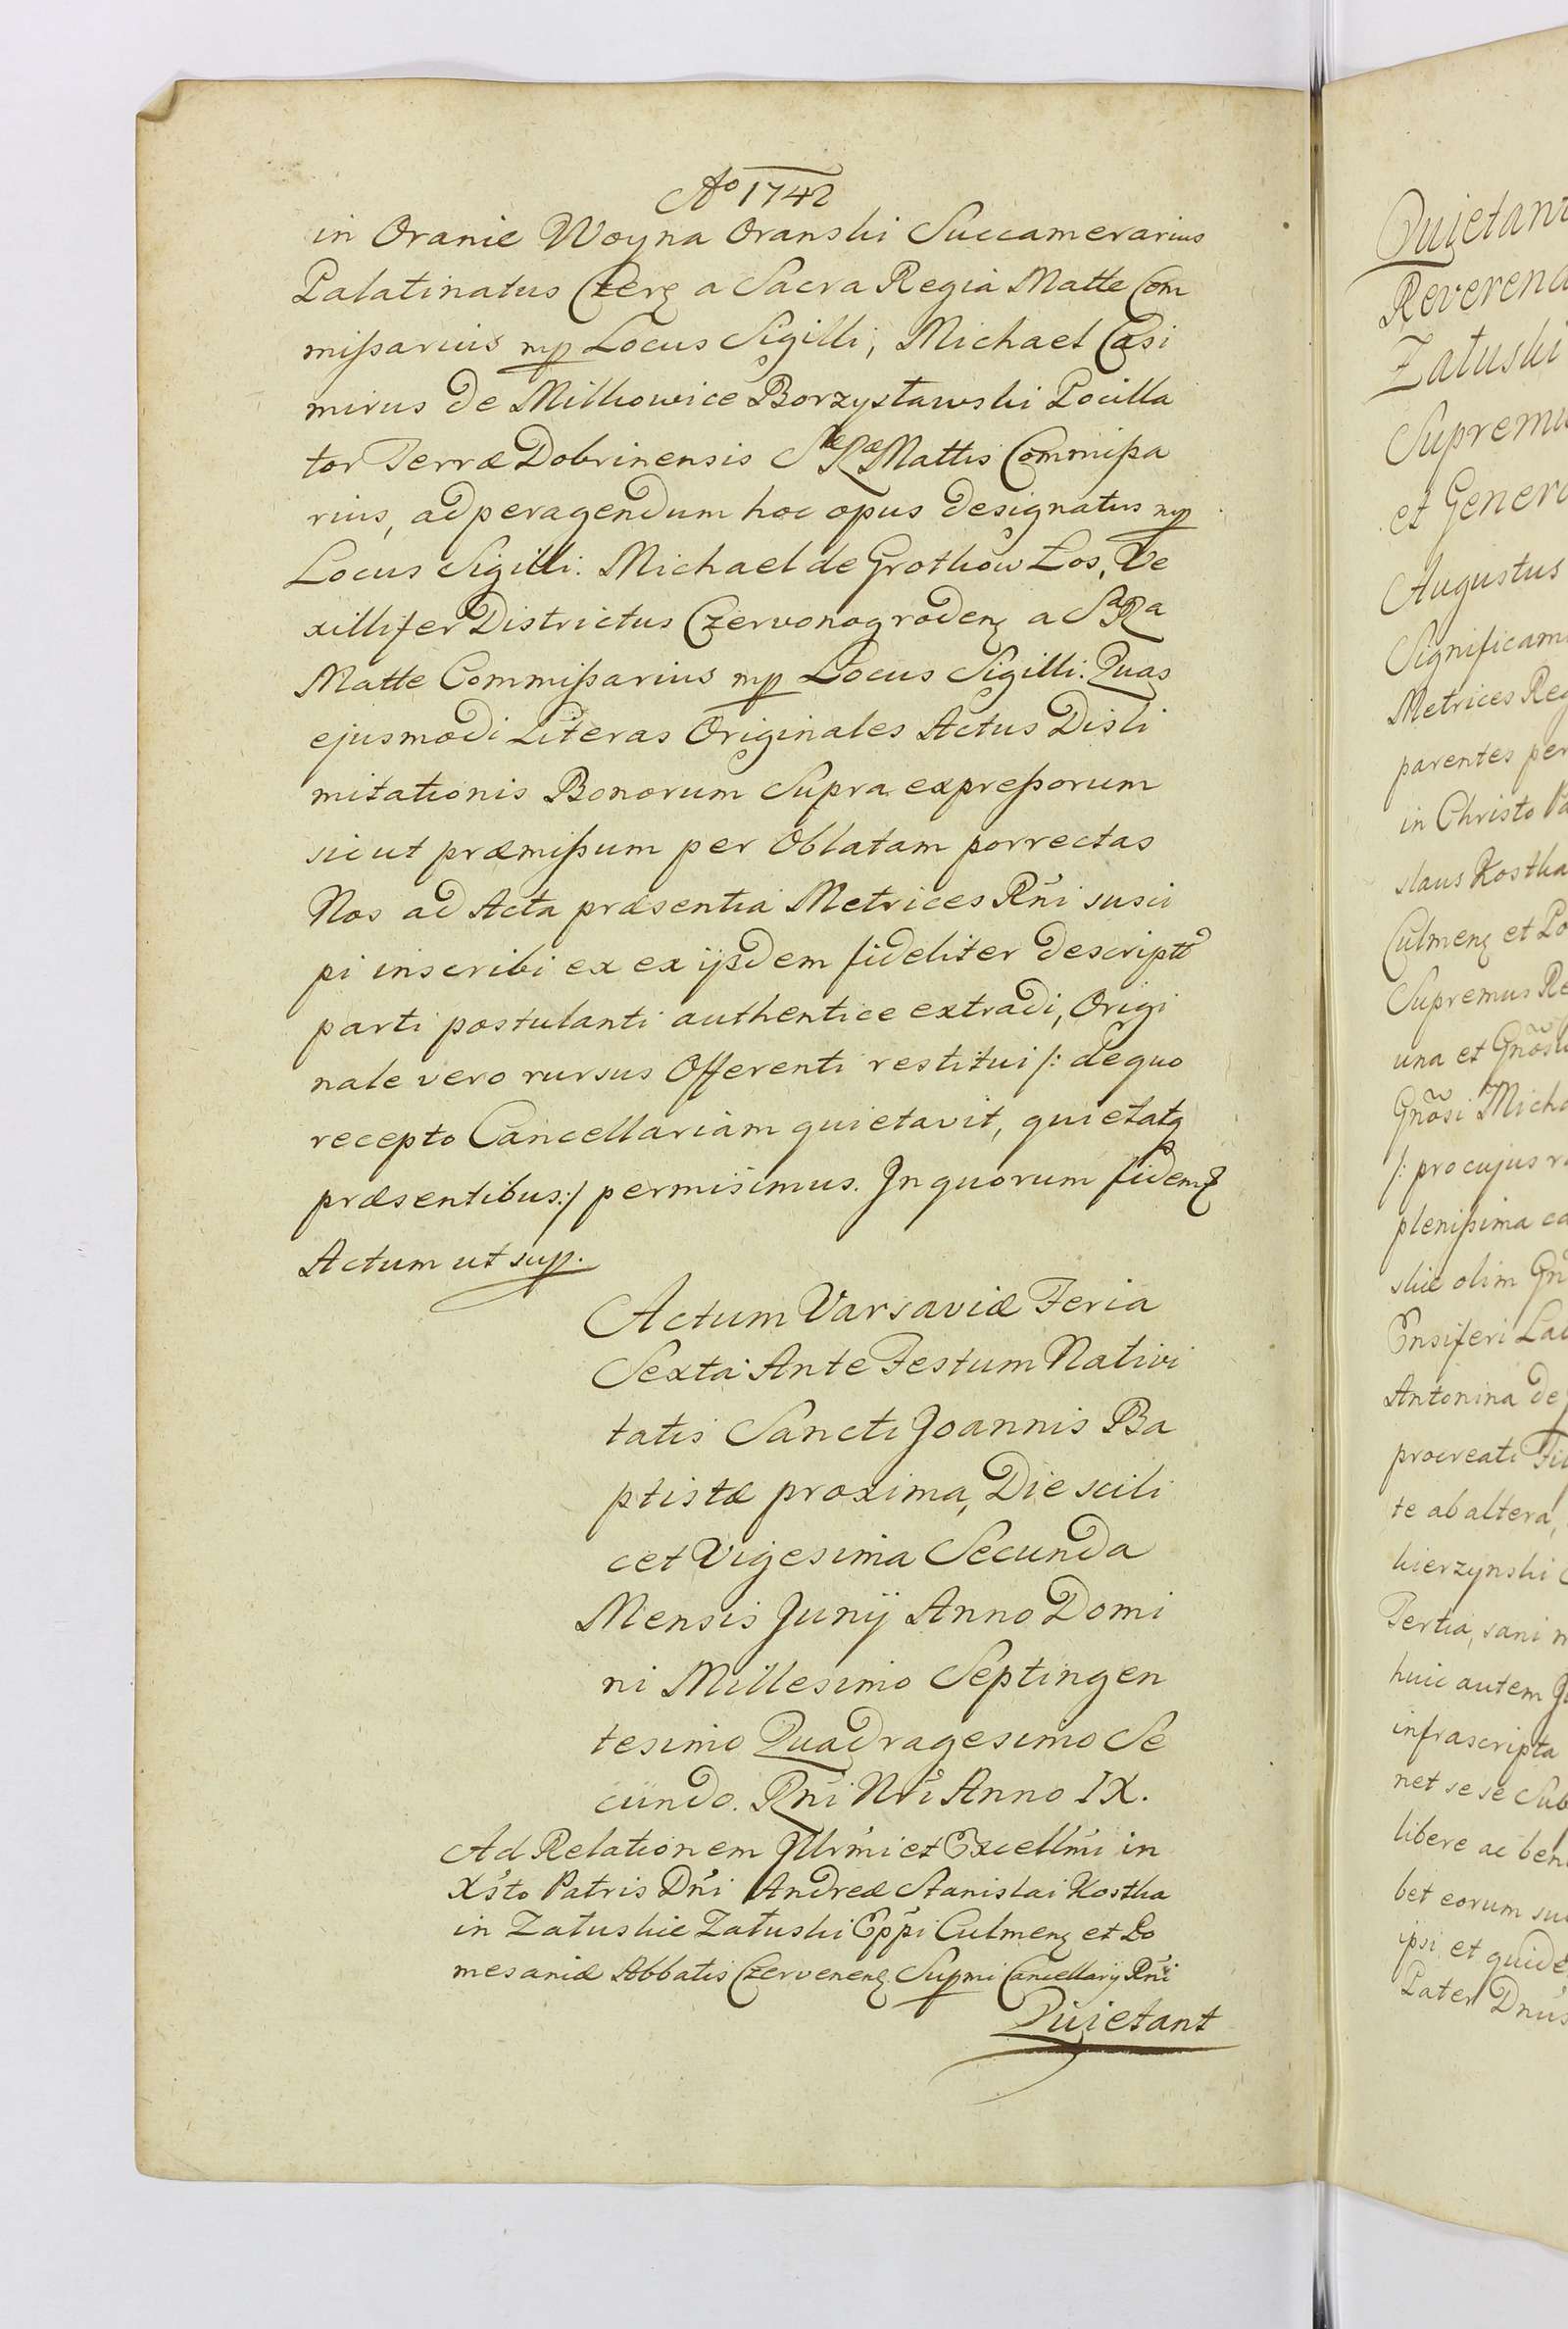 Aº 1742
in Oranie Woyna Oranski Succamerarius
Palatinatus Czerꝫ a Sacra Regia Matte Com
missarius mp Locus Sigilli, Michael Casi
mirus de Milkowice Borzysławski Pocilla
tor Terræ Dobrinensis Sæ Ræ Mattis Commissa
rius, ad peragendum hoc opus designatus mp
Locus Sigilli. Michael de Grotkow Łos, Ve
xillifer Districtus Czervonogrodenꝫ a Sa Ra
Matte Commissarius mp Locus Sigilli: Quas
ejusmodi Literas Originales Actus Disli
mitationis Bonorum Supra expressorum
sicut præmissum per Oblatam porrectas
Nos ad Acta præsentia Metrices Rñi susci
pi inscribi ex ex ijsdem fideliter descriptũ
parti postulanti authentice extradi, Origi
nale vero rursus Offerenti restitui /: de quo
recepto Cancellariam quietavit, quietatq
præsentibus :/ permisimus. In quorum fidem ꝫ
Actum ut sup.
Actum Varsaviæ Feria
Sexta Ante Festum Nativi
tatis Sancti Joannis Ba
ptistæ proxima, Die scili
cet Vigesima Secunda
Mensis Junij Anno Domi
ni Millesimo Septingen
tesimo Quadragesimo Se
cundo. Rñi Nri Anno IX.
Ad Relationem Illrmi et Excellmi in
Xsto Patris Dñi Andreæ Stanislai Kostka
in Załuskie Załuski Eppi Culmenꝫ et Po
mesaniæ Abbatis Czervenenꝫ Supmi Cancellarij Rñi
Quietant
Quietant
Reverend
Załuski
Supremu
et Genero
Augustus
Significam
Metrices Reg
parentes per
in Christo Pa
slaus Kostka
Culmenꝫ et Po
Supremus Re
una et Gñosu
Gñosi Micha
/: pro cujus ra
plenissima ca
skie olim Gn
Ensiferi La
Antonina de
procreati Fil
te ab altera,
kierzynski
Tertia, sani m
huic autem Ju
infrascripta
net se se Sub
libere ac bene
bet eorum su
ipsi et quide
Pater Dnus